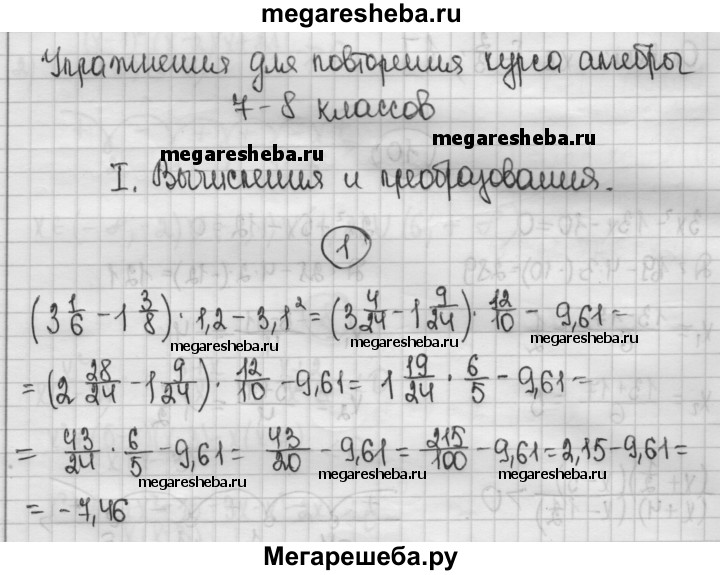 megaresheba.ru
Упражнения для повторения курса алгебры
7-8 классов
megaresheba.ru megaresheba.ru
I. Вычисления и преобразования.
1
(3 1/6 - 1 3/8) · 1,2 - 3,1² = (3 4/24 - 1 9/24) · 12/10 - 9,61 =
megaresheba.ru megaresheba.ru
= (2 28/24 - 1 9/24) · 12/10 - 9,61 = 1 19/24 · 6/5 - 9,61 =
megaresheba.ru megaresheba.ru
= 43/24 · 6/5 - 9,61 = 43/20 - 9,61 = 215/100 - 9,61 = 2,15 - 9,61 =
megaresheba.ru megaresheba.ru megaresheba.ru
= -7,46
Мегарешеба.ру